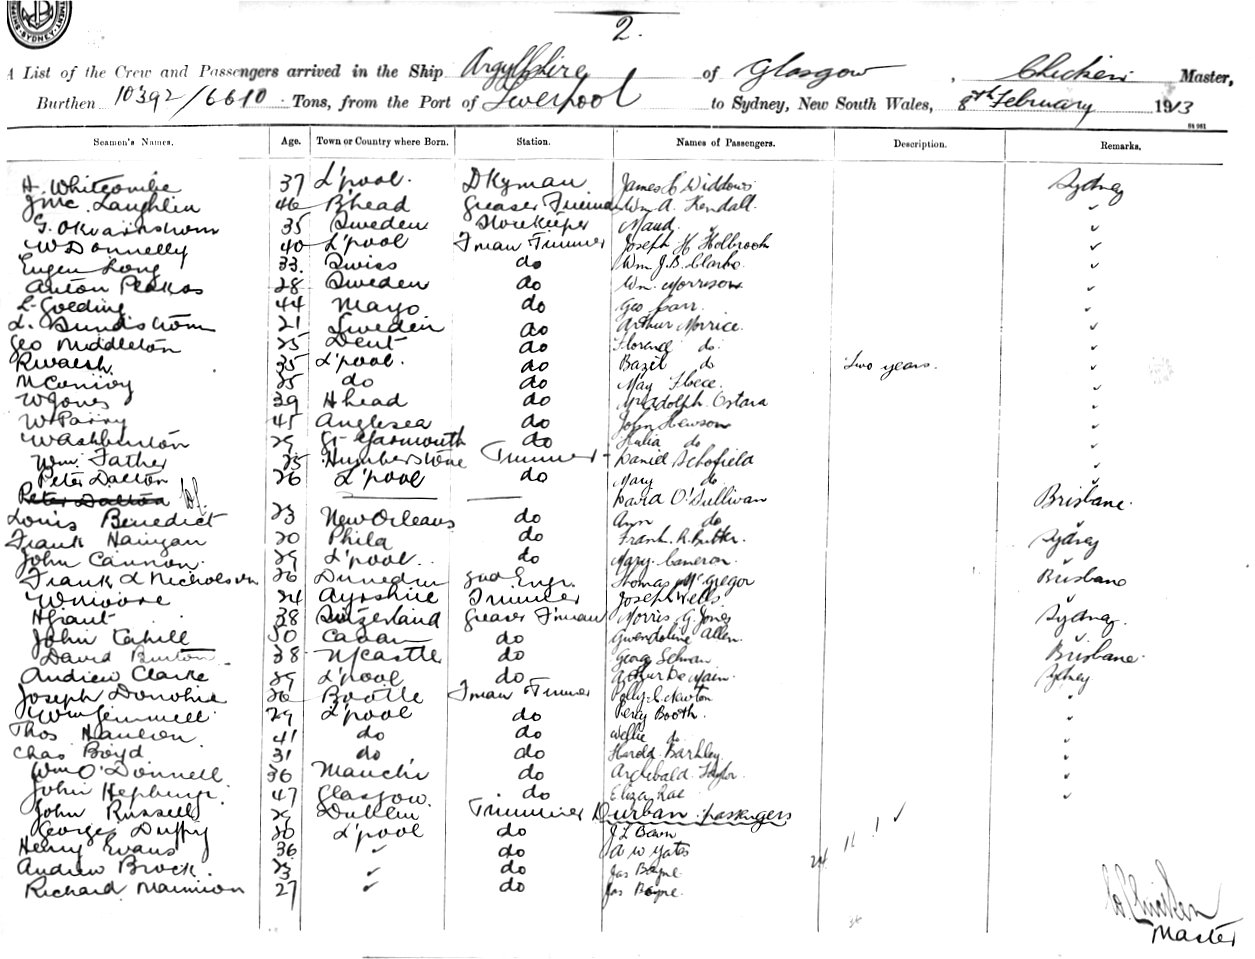 SYDNEY
2.
A List of the Crew and Passengers arrived in the Ship Argyllshire of Glasgow, Chicken Master,
Burthen 10392/6610 Tons, from the Port of Liverpool to Sydney, New South Wales, 8th February 1913
Seamen's Names. Age. Town or Country where Born. Station. Names of Passengers. Description. Remarks.
H. Whitcombe 37 L'pool. Dkyman James Widdows Sydney
J Mc Laughlin 46 B'head Greaser Fireman Wm A. Kendall ✓
G. 35 Sweden Storekeeper Maud ✓
W Donnelly 40 L'pool F'man Trimmer Joseph H Holbrook ✓
Eugen Long 33. Swiss do Wm J.B. Clarke ✓
Anton 28 Sweden do Wm. Morrison ✓
L. Golding 44 Mayo do Geo ✓
L. Sundstrom 21 Sweden do Arthur Morrice. ✓
Geo Middleton 25 do Florence do. ✓
R Walsh. 35 L'pool. do Bazil do Two years. ✓
M Conroy 25 do do May ✓
W Jones 39 H'head do Adolph ✓
W Parry 45 Anglesea do John Hewson ✓
W Ashburton 29 Gt Yarmouth do do ✓
Wm. Father 25 Humberstone Trimmer Daniel Schofield ✓
Peter Dalton 26 L'pool do Mary do ✓
Peter Dalton David O'Sullivan Brisbane.
Louis Benedict 23 New Orleans do Ann do ✓
Frank 20 Phila do Frank R. Butler. Sydney
John Cannon. 29 L'pool. do Mary Cameron. ✓
Frank L Nicholson 26 Dunedin 2nd Engr. Thomas McGregor Brisbane
W Moore 24 Ayrshire Trimmer Joseph Wells ✓
H Grant 38 Switzerland Greaser F'man Morris G. Jones Sydney.
John Cahill 50 do Gwendoline Allen. ✓
David Burton 38 N'castle do Brisbane.
Andrew Clarke 29 L'pool do Arthur Sydney
Joseph Donohue 26 Bootle F'man & Trimmer Polly Newton ✓
Wm Gemmell 29 L'pool do Percy Booth. ✓
Thos Hanlon 41 do do do ✓
Chas Boyd 31 do do Harold Barkley ✓
Wm O'Donnell 36 Manch'r do Archibald Taylor. ✓
John Hepburn 47 Glasgow. do Eliza Rae ✓
John Russell 29 Dublin Trimmer Durban passengers
George Duffy 20 L'pool do J L Bawn ✓
Henry Evans 36 ✓ do A W Yates
Andrew Brock. 23 ✓ do Jas Boyne
Richard Mannion 27 ✓ do Jas Boyne
Chicken
Master